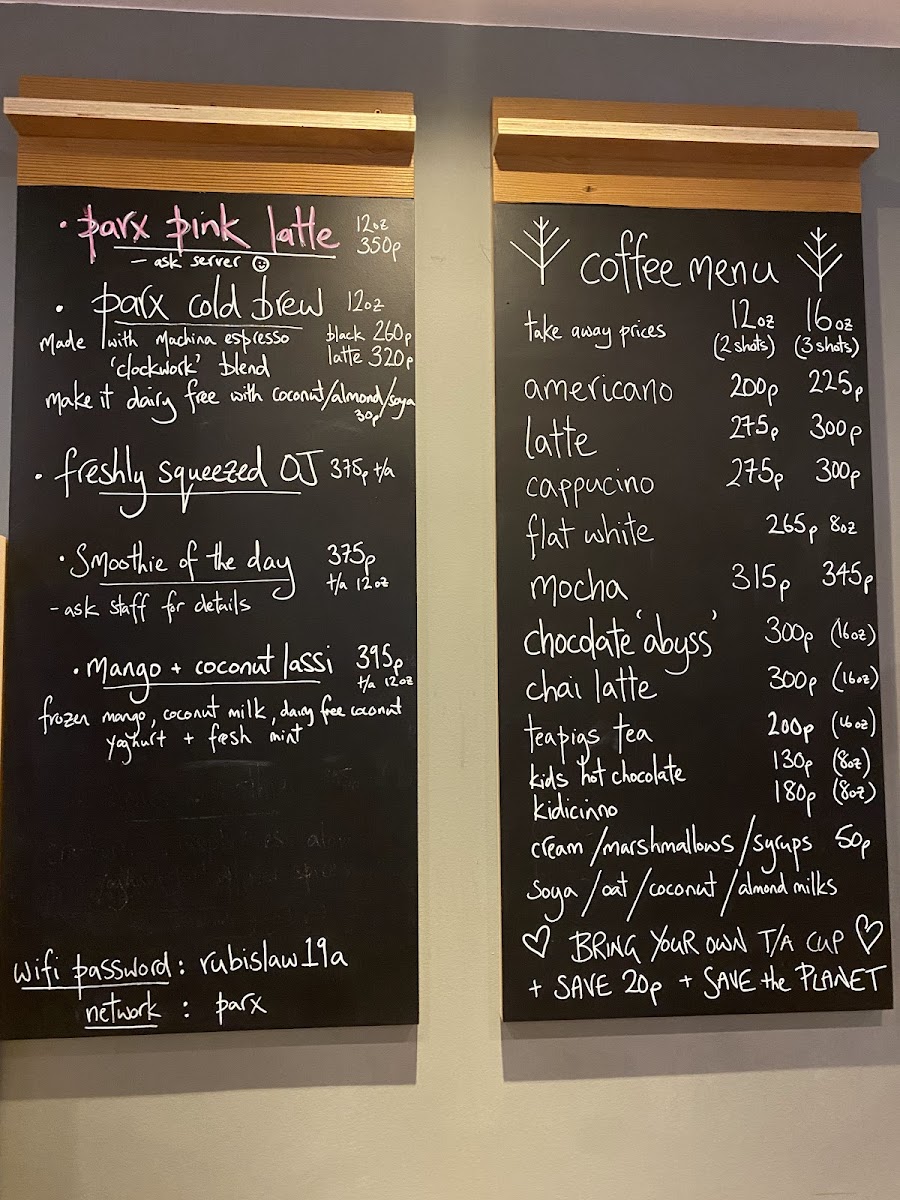 • parx pink latte 12oz 350p
- ask server ☺
• parx cold brew 12oz
made with machina espresso black 260p
'clockwork' blend latte 320p
make it dairy free with coconut/almond/soya
30p
• freshly squeezed OJ 375p t/a
• Smoothie of the day 375p
t/a 12oz
- ask staff for details
• Mango + coconut lassi 395p
t/a 12oz
frozen mango, coconut milk, dairy free coconut
yoghurt + fresh mint
wifi password: rubislaw19a
network : parx
coffee menu
take away prices 12oz 16oz
(2 shots) (3 shots)
americano 200p 225p
latte 275p 300p
cappucino 275p 300p
flat white 265p 8oz
mocha 315p 345p
chocolate 'abyss' 300p (16oz)
chai latte 300p (16oz)
teapigs tea 200p (16oz)
kids hot chocolate 130p (8oz)
kidicinno 180p (8oz)
cream/marshmallows/syrups 50p
soya/oat/coconut/almond milks
♡ BRING YOUR OWN T/A CUP ♡
+ SAVE 20p + SAVE the PLANET